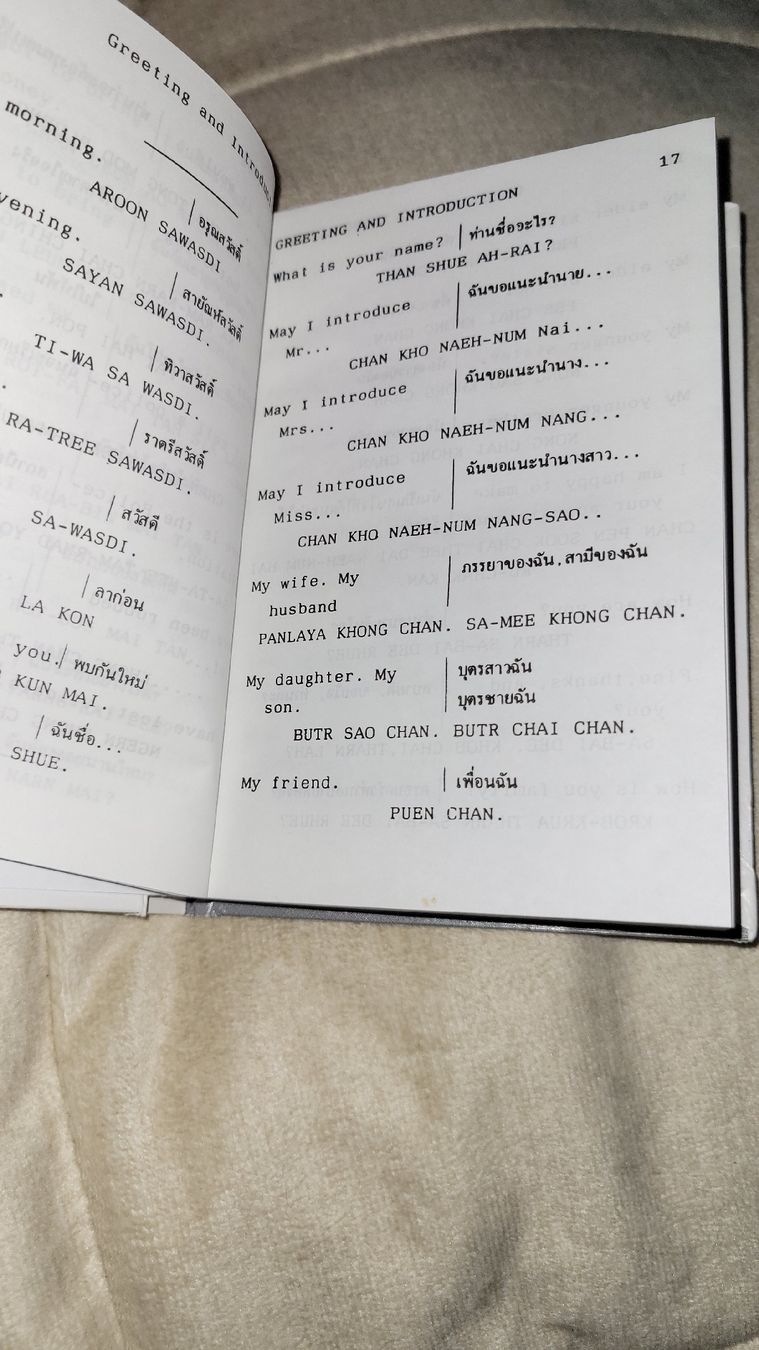 Greeting and Introduc
morning.
อรุณสวัสดิ์
AROON SAWASDI
vening.
สายัณห์สวัสดิ์
SAYAN SAWASDI.
ทิวาสวัสดิ์
TI-WA SA WASDI.
ราตรีสวัสดิ์
RA-TREE SAWASDI.
สวัสดี
SA-WASDI.
ลาก่อน
LA KON
you. พบกันใหม่
KUN MAI.
ฉันชื่อ...
SHUE.
17
GREETING AND INTRODUCTION
What is your name? ท่านชื่ออะไร?
THAN SHUE AH-RAI?
May I introduce ฉันขอแนะนำนาย...
Mr...
CHAN KHO NAEH-NUM Nai...
May I introduce ฉันขอแนะนำนาง...
Mrs...
CHAN KHO NAEH-NUM NANG...
May I introduce ฉันขอแนะนำนางสาว...
Miss...
CHAN KHO NAEH-NUM NANG-SAO..
My wife. My ภรรยาของฉัน,สามีของฉัน
husband
PANLAYA KHONG CHAN. SA-MEE KHONG CHAN.
My daughter. My บุตรสาวฉัน
son. บุตรชายฉัน
BUTR SAO CHAN. BUTR CHAI CHAN.
My friend. เพื่อนฉัน
PUEN CHAN.